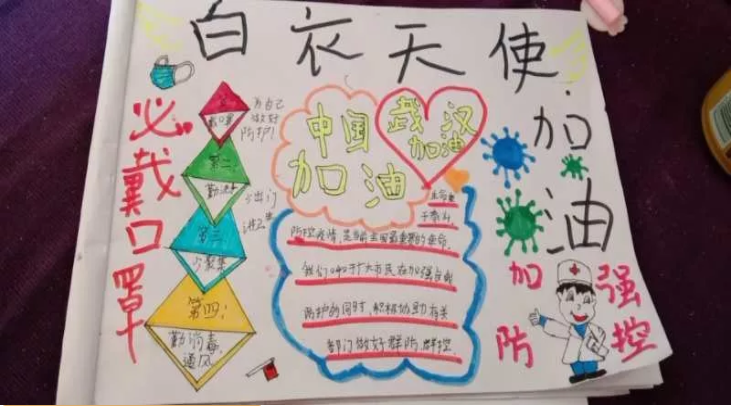 白衣天使
加油
必戴口罩
戴口罩
为自己
做好
防护!
第二:
勤洗手
少出门
讲卫生
第三:
少聚集
第四:
勤消毒,
通风
中国
加油
武汉
加油
生命重
于泰山,
防控疫情,是当前全国最重要的使命,
我们呼吁广大市民在加强自我
防护的同时,积极协助有关
部门做好群防,群控,
加强
防控